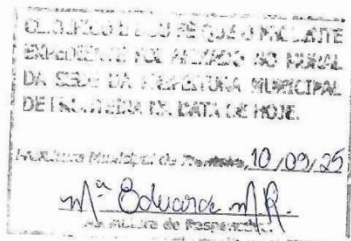 CERTIFICO E DOU FÉ QUE O PRESENTE
EXPEDIENTE FOI AFIXADO NO MURAL
DA SEDE DA PREFEITURA MUNICIPAL
DE DATA DE HOJE.
Prefeitura Municipal de 10/09/25
Mª Eduarda M.R.
Assinatura do Responsável